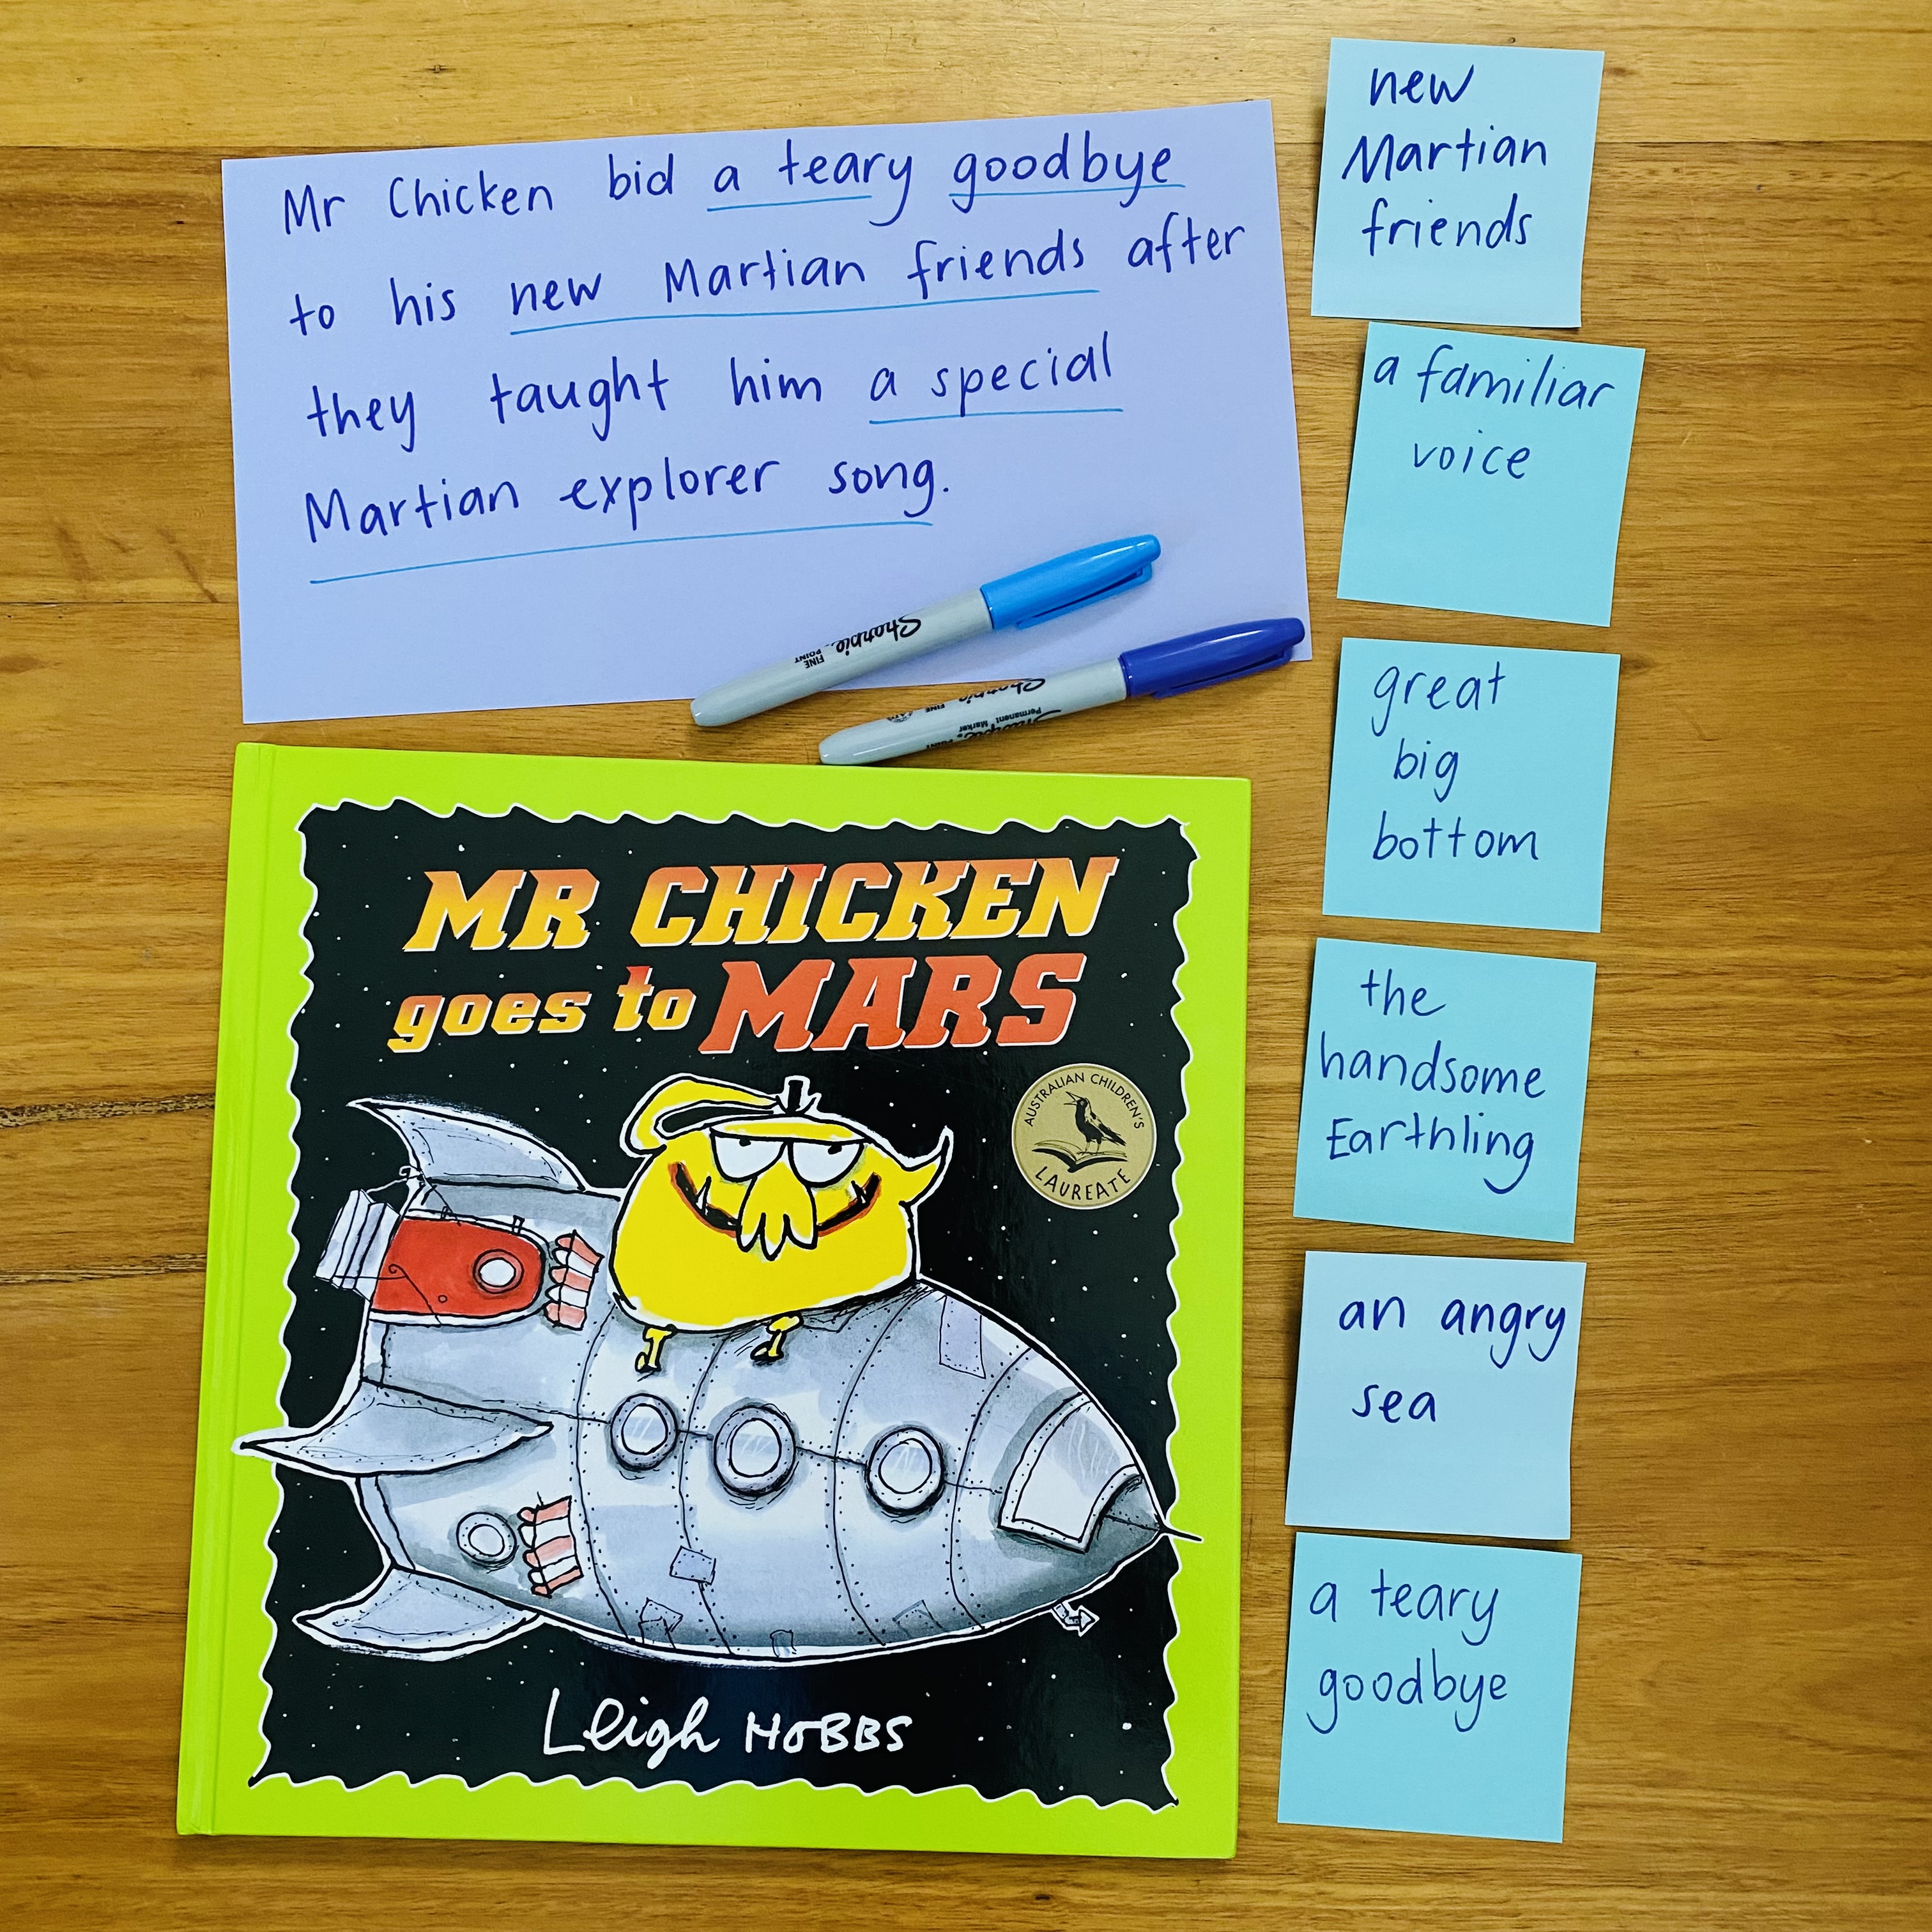 Mr Chicken bid a teary goodbye
to his new Martian friends after
they taught him a special
Martian explorer song.
Sharpie
FINE
POINT
Sharpie
FINE
Permanent
Marker
MR CHICKEN
goes to MARS
AUSTRALIAN CHILDREN'S
LAUREATE
Leigh HOBBS
new
Martian
friends
a familiar
voice
great
big
bottom
the
handsome
Earthling
an angry
sea
a teary
goodbye